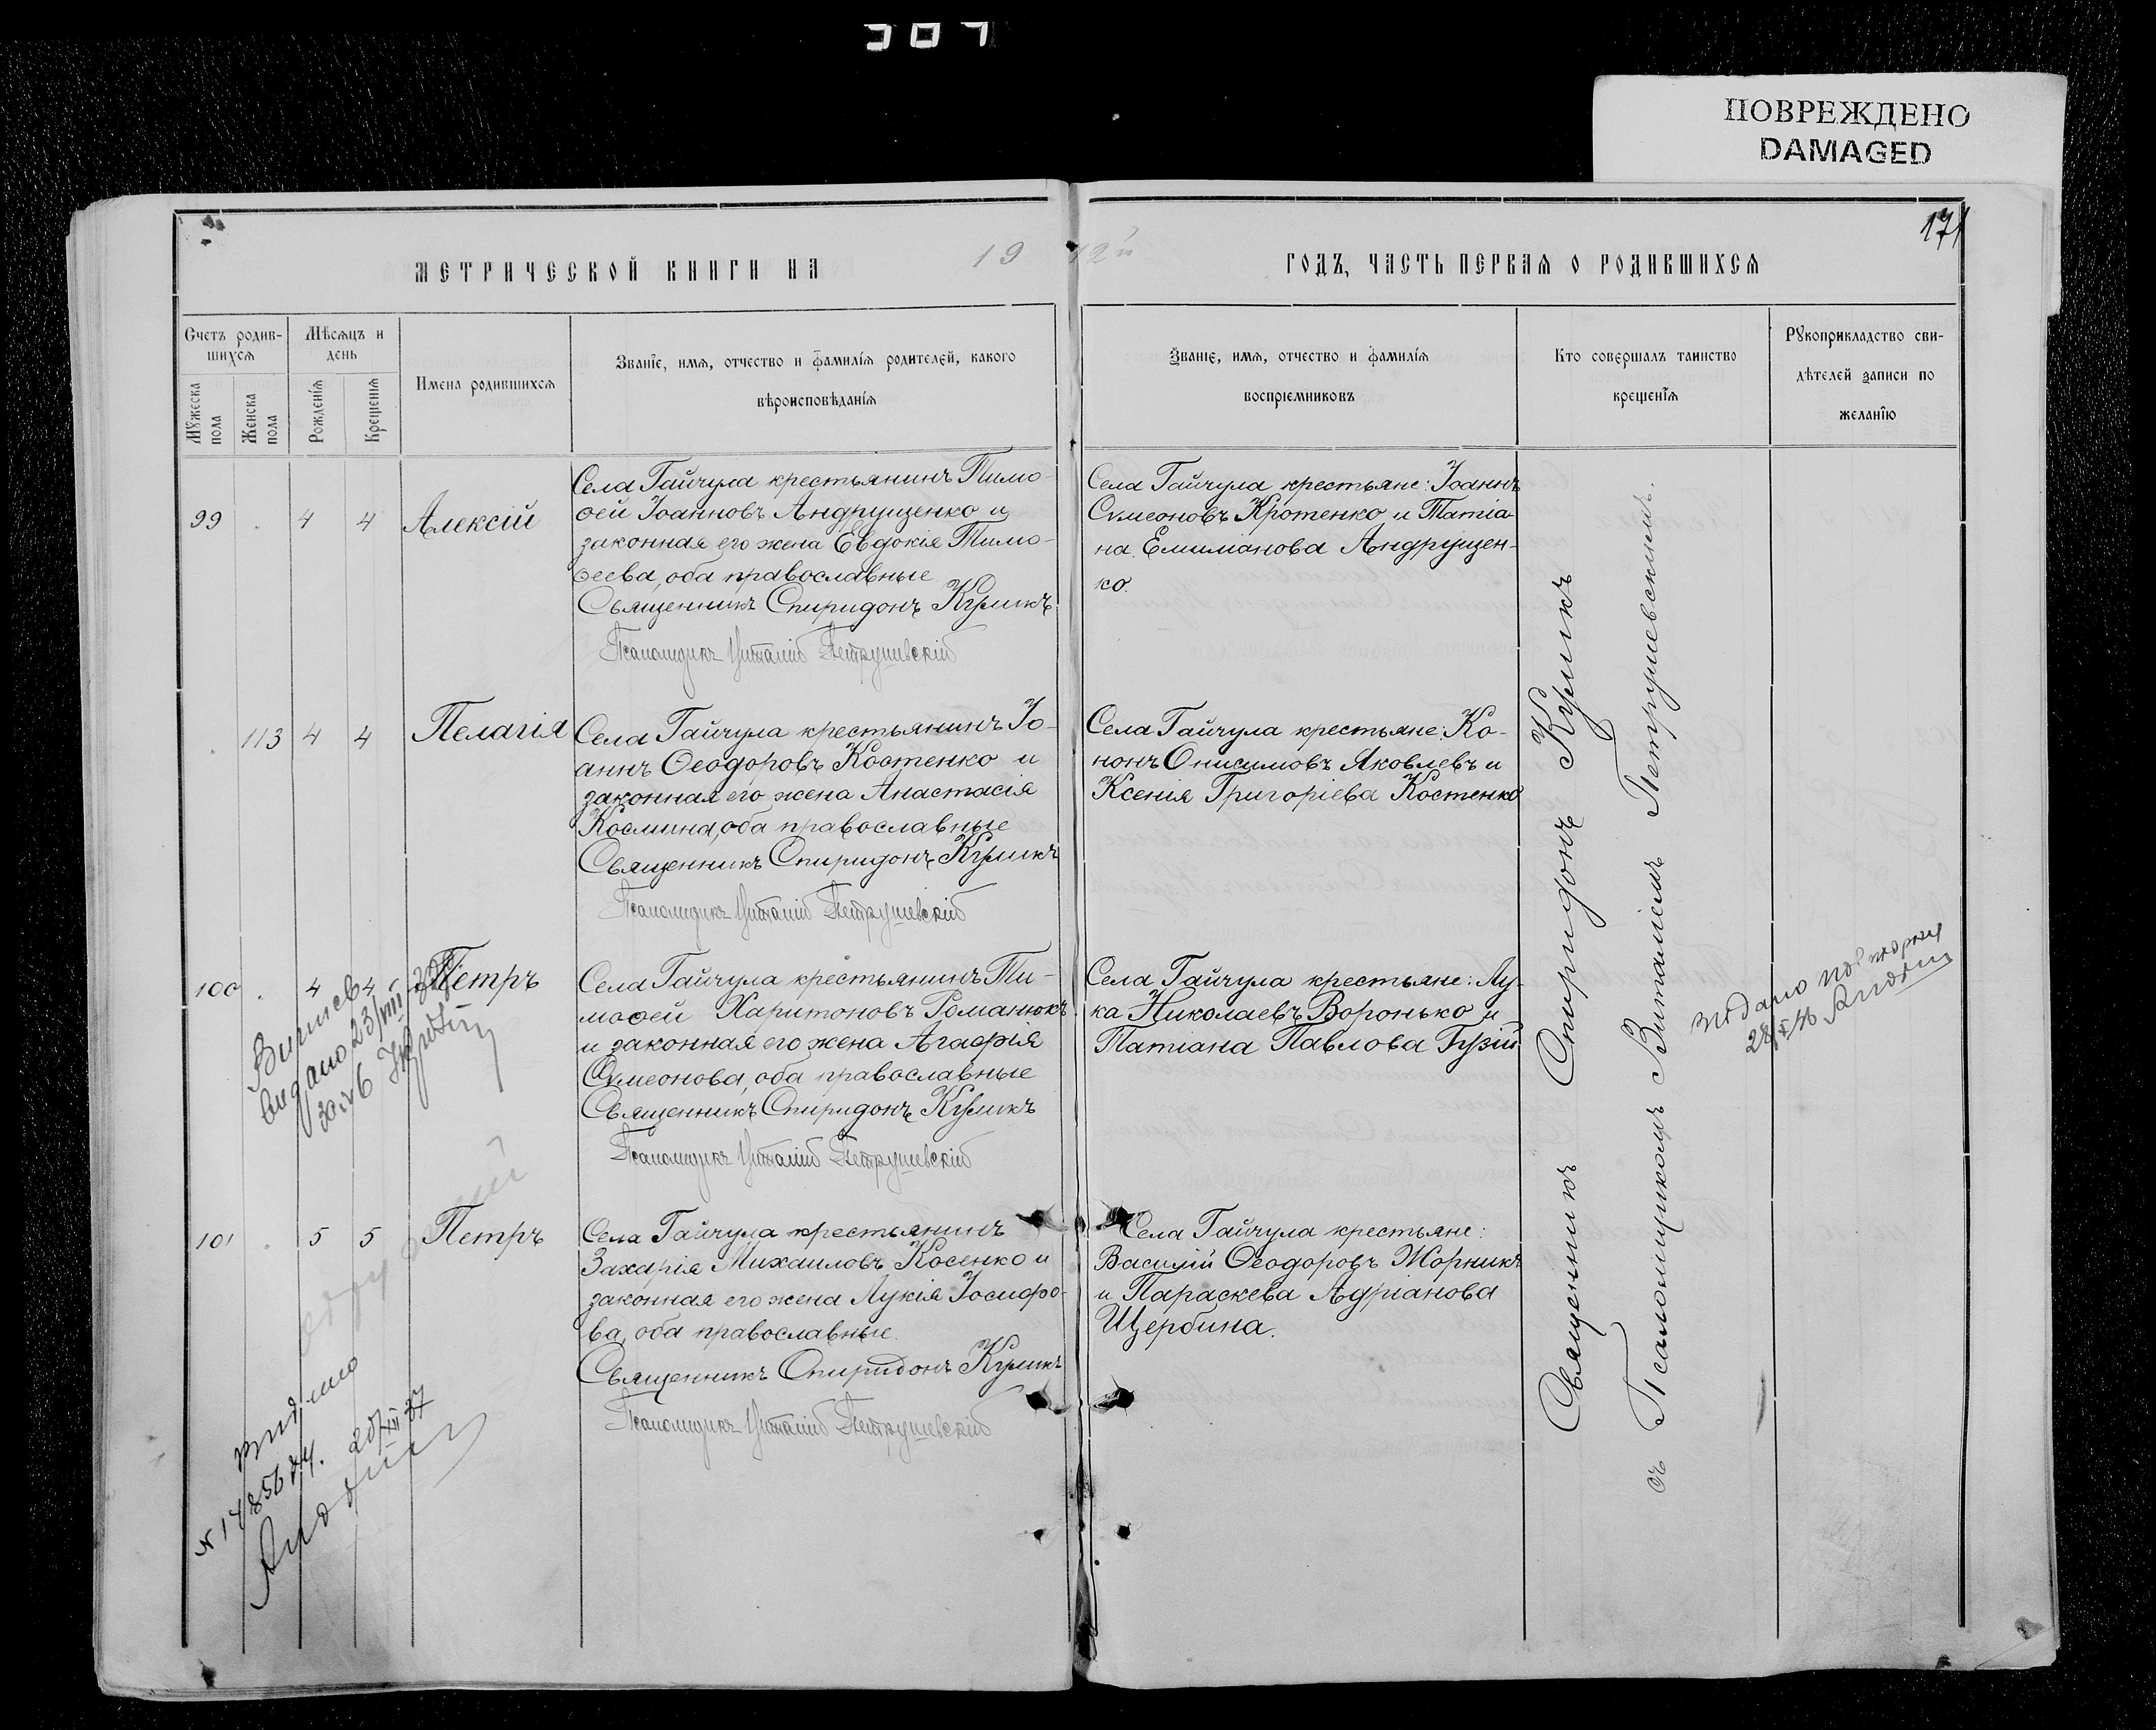 ПОВРЕЖДЕНО
DAMAGED
171
МЕТРИЧЕСКОЙ КНИГИ НА 19
12й ГОДЪ, ЧАСТЬ ПЕРВАЯ О РОДИВШИХСЯ
Счетъ родив-
шихся
Мужеска
пола
Женска
пола
Мѣсяцъ и
день
Рожденія
Крещенія
Имена родившихся
Званіе, имя, отчество и фамилія родителей, какого
вѣроисповѣданія
Званіе, имя, отчество и фамилія
воспріемниковъ
Кто совершалъ таинство
крещенія
Рукоприкладство сви-
дѣтелей записи по
желанію
99 4 4 Алексій
Села Гайчула крестьянинъ Тимо-
ѳей Іоанновъ Андрущенко и
законная его жена Евдокія Тимо-
ѳеева, оба православные
Священникъ Спиридонъ Куликъ
Псаломщикъ Виталій Петрушевскій
Села Гайчула крестьяне: Іоаннъ
Сѵмеоновъ Кротенко и Татіа-
на Емиліанова Андрущен-
ко.
113 4 4 Пелагія
Села Гайчула крестьянинъ Іо-
аннъ Ѳеодоровъ Костенко и
законная его жена Анастасія
Космина, оба православные
Священникъ Спиридонъ Куликъ
Псаломщикъ Виталій Петрушевскій
Села Гайчула крестьяне: Ко-
нонъ Онисимовъ Яковлевъ и
Ксенія Григоріева Костенко
100 4 4 Петръ
Села Гайчула крестьянинъ Ти-
моѳей Харитоновъ Романюкъ
и законная его жена Агафія
Сѵмеонова, оба православные
Священникъ Спиридонъ Куликъ
Псаломщикъ Виталій Петрушевскій
Села Гайчула крестьяне: Лу-
ка Николаевъ Воронько и
Татіана Павлова Гузій
видано 23/VIII
видано повторну
28/X 46
101 5 5 Петръ
Села Гайчула крестьянинъ
Захарія Михаиловъ Косенко и
законная его жена Лукія Іосифо-
ва, оба православные
Священникъ Спиридонъ Куликъ
Псаломщикъ Виталій Петрушевскій
Села Гайчула крестьяне:
Василій Ѳеодоровъ Жорникъ
и Параскева Адріанова
Щербина.
видано
Священникъ Спиридонъ Куликъ
съ Псаломщикомъ Виталіемъ Петрушевскимъ.